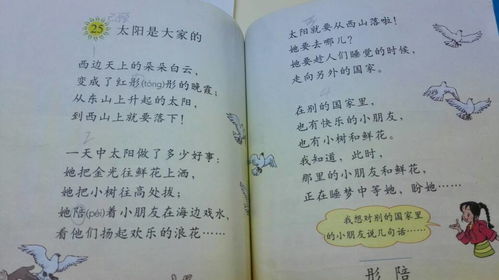 25 太阳是大家的
西边天上的朵朵白云，
变成了红彤(tóng)彤的晚霞；
从东山上升起的太阳，
到西山上就要落下！
一天中太阳做了多少好事：
她把金光往鲜花上洒，
她把小树往高处拔；
她陪(péi)着小朋友在海边戏水，
看他们扬起欢乐的浪花……
太阳就要从西山落啦！
她要去哪儿？
她要趁人们睡觉的时候，
走向另外的国家。
在别的国家里，
也有快乐的小朋友，
也有小树和鲜花。
我知道，此时，
那里的小朋友和鲜花，
正在睡梦中等她，盼她……
我想对别的国家里
的小朋友说几句话……
彤 陪